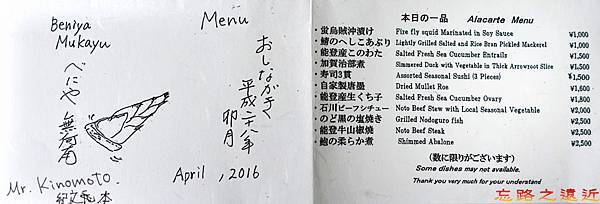 Beniya
Mukayu
べにや 無何有
Mr. Kinomoto.
Menu
おしながき
平成二十八年
卯月
April , 2016
本日の一品 Alacarte Menu
・蛍烏賊沖漬け Fire fly squid Marinated in Soy Sauce ¥1,000
・鯖のへしこあぶり Lightly Grilled Salted and Rice Bran Pickled Mackerel ¥1,000
・能登産このわた Salted Fresh Sea Cucumber Entrails ¥1,500
・加賀治部煮 Simmered Duck with Vegetable in Thick Arrowroot Slice ¥1,500
・寿司3貫 Assorted Seasonal Sushi (3 Pieces) ¥1,500
・自家製唐墨 Dried Mullet Roe ¥1,600
・能登産生くち子 Salted Fresh Sea Cucumber Ovary ¥1,800
・石川ビーフシチュー Noto Beef Stew with Local Seasonal Vegetable ¥2,000
・のど黒の塩焼き Grilled Nodoguro fish ¥2,500
・能登牛山椒焼 Noto Beef Steak ¥2,500
・鮑の柔らか煮 Shimmed Abalone ¥2,500
(数に限りがございます)
Some dishes may not available.
Thank you very much for your understand
忘路之遠近